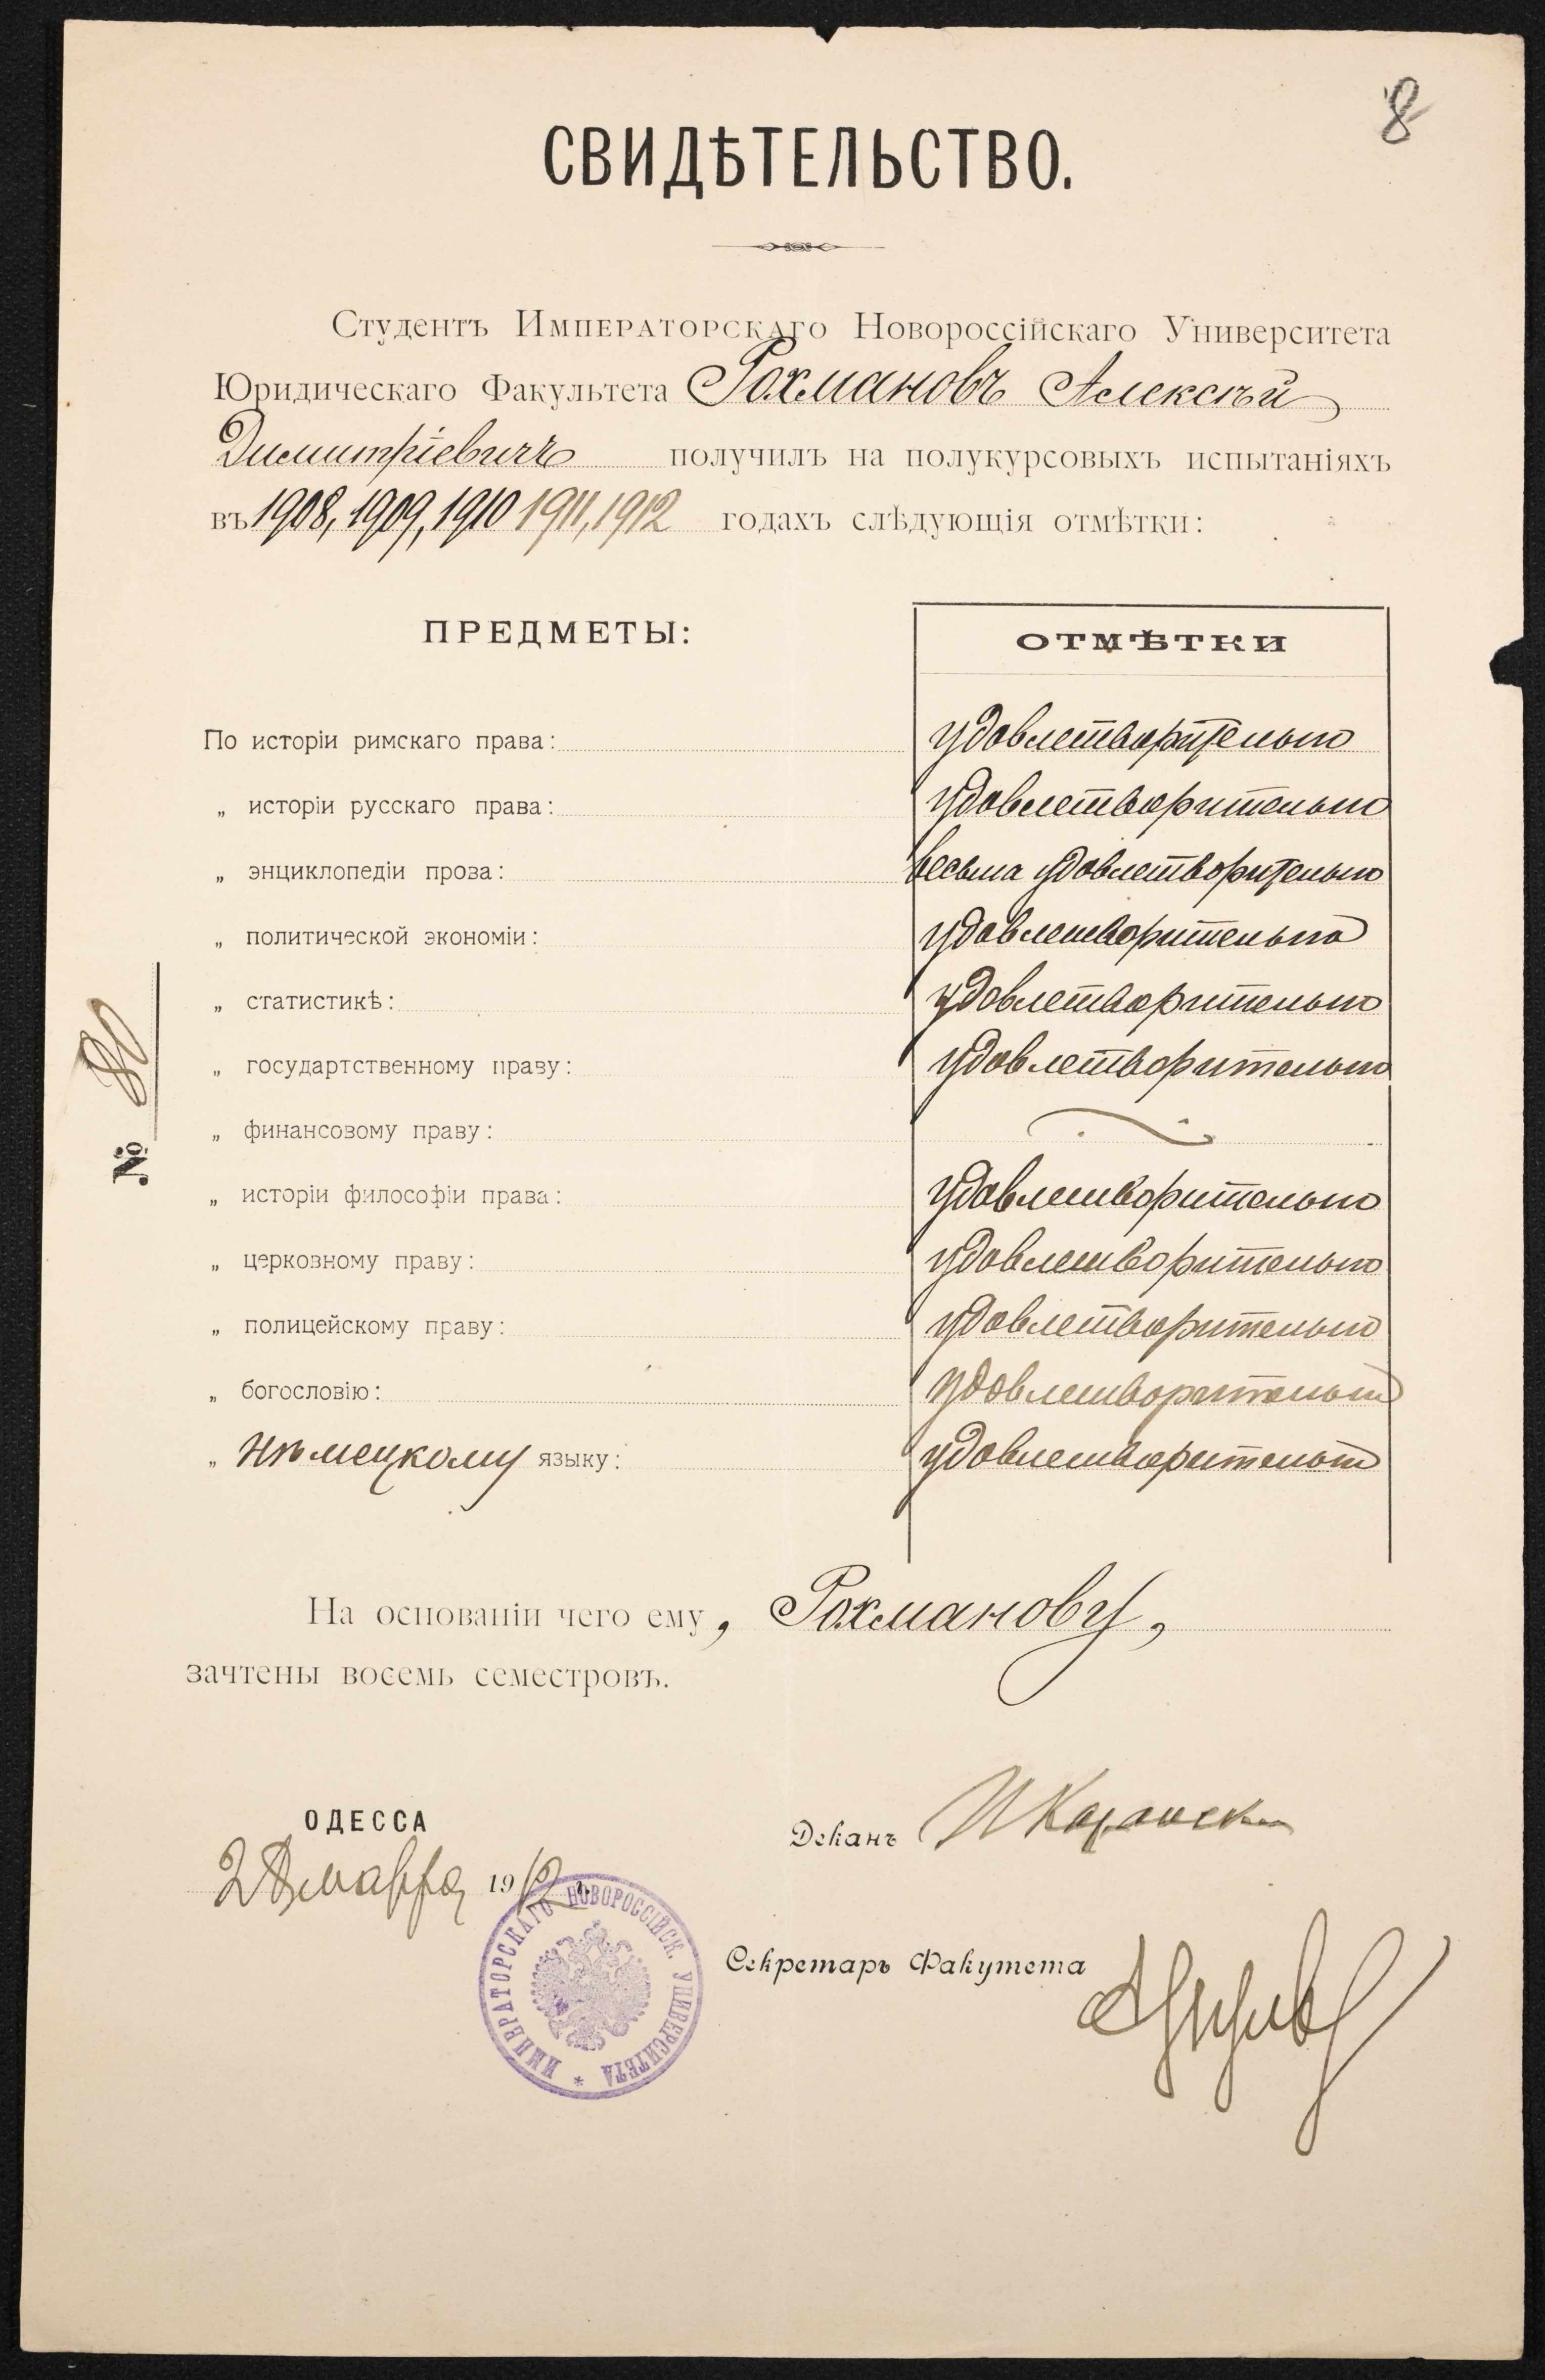 8
СВИДѢТЕЛЬСТВО.
Студентъ Императорскаго Новороссійскаго Университета
Юридическаго Факультета Рахмановъ Алексѣй
Димитріевичъ получилъ на полукурсовыхъ испытаніяхъ
въ 1908, 1909, 1910 1911, 1912 годахъ слѣдующія отмѣтки:
ПРЕДМЕТЫ: ОТМѢТКИ
По исторіи римскаго права: удовлетворительно
„ исторіи русскаго права: удовлетворительно
„ энциклопедіи права: весьма удовлетворительно
„ политической экономіи: удовлетворительно
„ статистикѣ: удовлетворительно
„ государтственному праву: удовлетворительно
„ финансовому праву:
„ исторіи философіи права: удовлетворительно
„ церковному праву: удовлетворительно
„ полицейскому праву: удовлетворительно
„ богословію: удовлетворительно
„ нѣмецкому языку: удовлетворительно
№ 80
На основаніи чего ему, Рахманову,
зачтены восемь семестровъ.
ОДЕССА
Деканъ
марта 1912 г.
ИМПЕРАТОРСКАГО НОВОРОССІЙСК. УНИВЕРСИТЕТА *
Секретарь Факутета